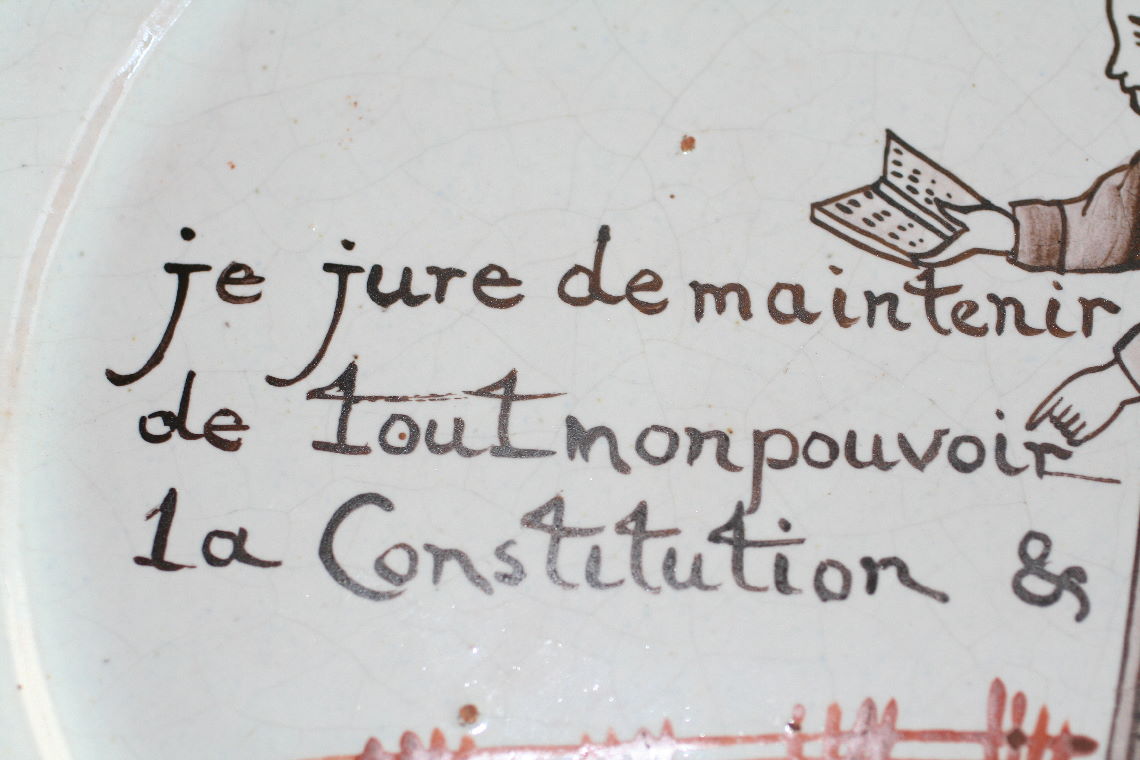 je jure de maintenir
de tout mon pouvoir
la Constitution &